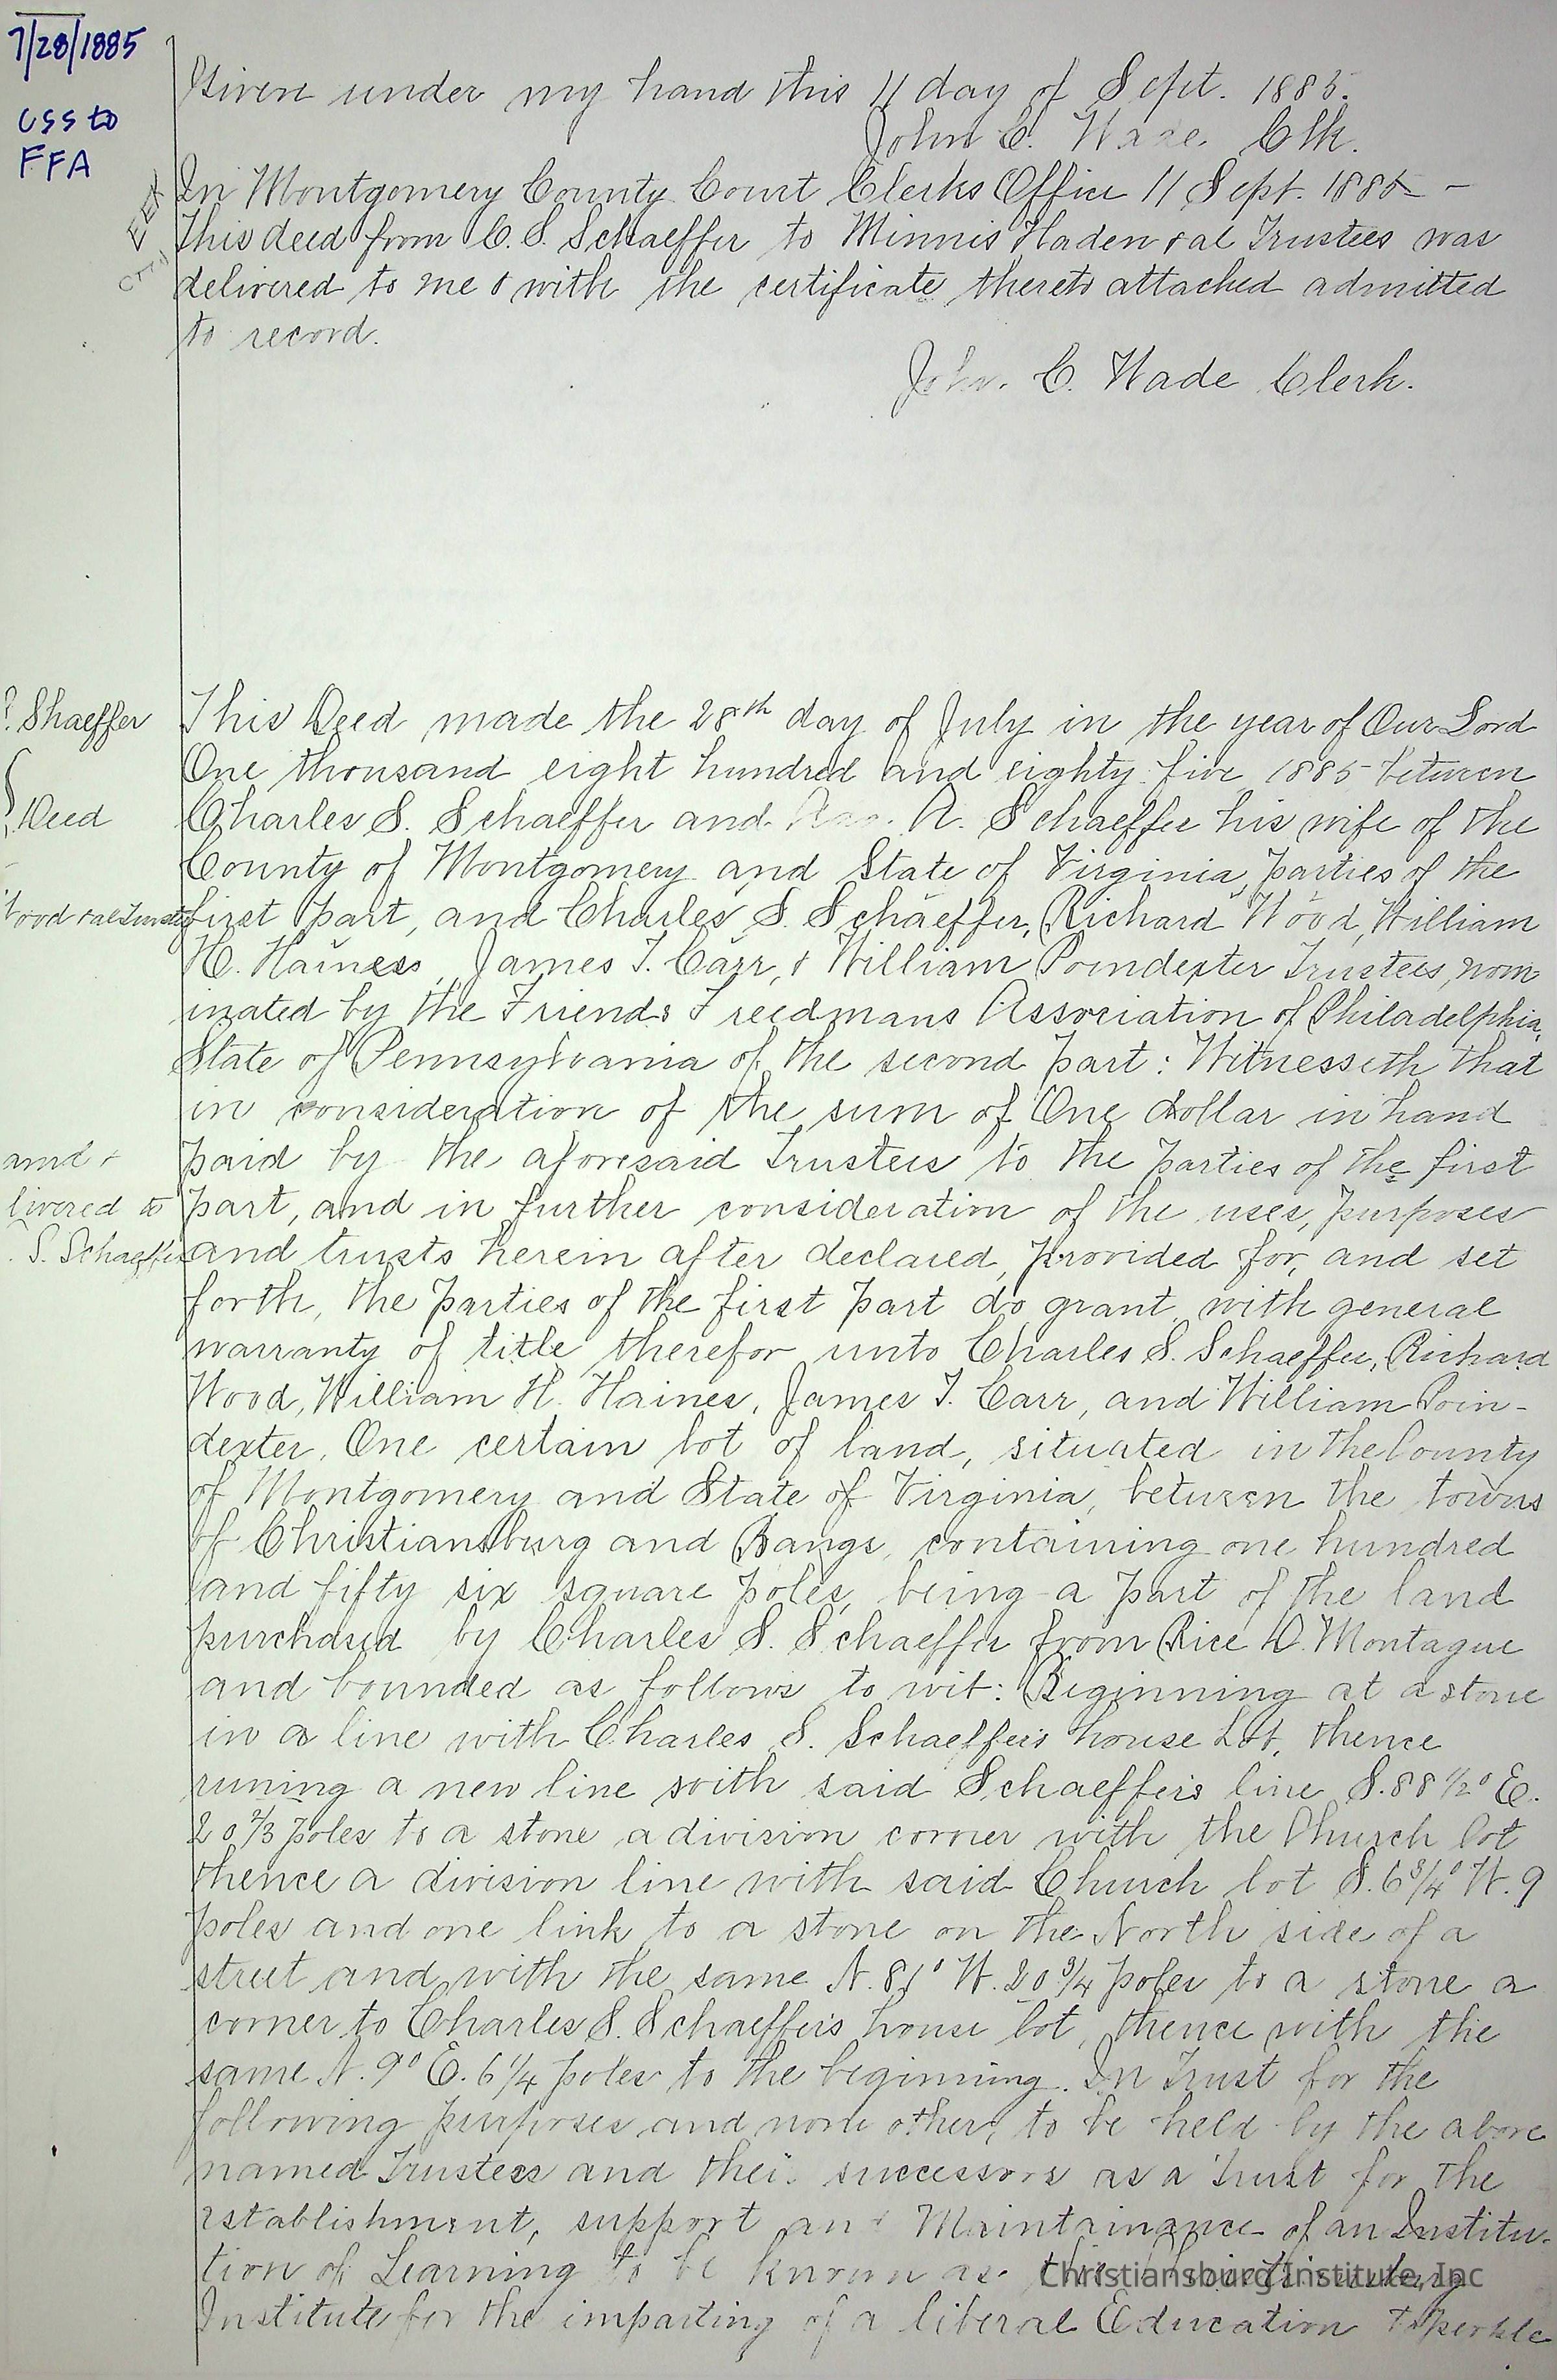 7/28/1885
CSS to
FFA
Given under my hand this 11 day of Sept. 1885.
John C. Wade. Clk.
In Montgomery County Court Clerks Office 11 Sept. 1885 -
This deed from C. S. Schaeffer to Minnis Haden & al Trustees was
delivered to me & with the certificate thereto attached admitted
to record.
John. C. Wade Clerk.
Shaeffer
Deed
Wood & al Trustees
and &
livered to
S. Schaeffer
This Deed made the 28th day of July in the year of Our Lord
One thousand eight hundred and eighty five 1885 between
Charles S. Schaeffer and A. Schaeffer his wife of the
County of Montgomery and State of Virginia, parties of the
first part, and Charles S. Schaeffer, Richard Wood, William
H. Hainess, James T. Carr, & William Poindexter Trustees, nom
inated by the Friends Freedmans Association of Philadelphia,
State of Pennsylvania of the second part: Witnesseth that
in consideration of the sum of One dollar in hand
paid by the aforesaid Trustees to the parties of the first
part, and in further consideration of the uses, purposes
and trusts herein after declared, provided for, and set
forth, the parties of the first part do grant, with general
warranty of title therefor unto Charles S. Schaeffer, Richard
Wood, William H. Haines, James T. Carr, and William Poin-
dexter, One certain lot of land, situated in the County
of Montgomery and State of Virginia, between the towns
of Christiansburg and Bangs, containing one hundred
and fifty six square poles, being a part of the land
purchased by Charles S. Schaeffer from Rice D. Montague
and bounded as follows to wit: Beginning at a stone
in a line with Charles S. Schaeffers house Lot, thence
runing a new line with said Schaeffers line S. 88 1/2° E.
20 2/3 poles to a stone a division corner with the Church lot
thence a division line with said Church lot S. 6 3/4° W. 9
poles and one link to a stone on the North side of a
street and with the same N. 81° W. 20 3/4 poles to a stone a
corner to Charles S. Schaeffers house lot, thence with the
same N. 9° E. 6 1/4 poles to the beginning. In Trust for the
following purposes and none other, to be held by the above
named Trustees and their successors as a Trust for the
establishment, support and Maintainance of an Institu-
tion of Learning to be known as the Christiansburg
Institute for the imparting of a liberal Education to
Christiansburg Institute, Inc